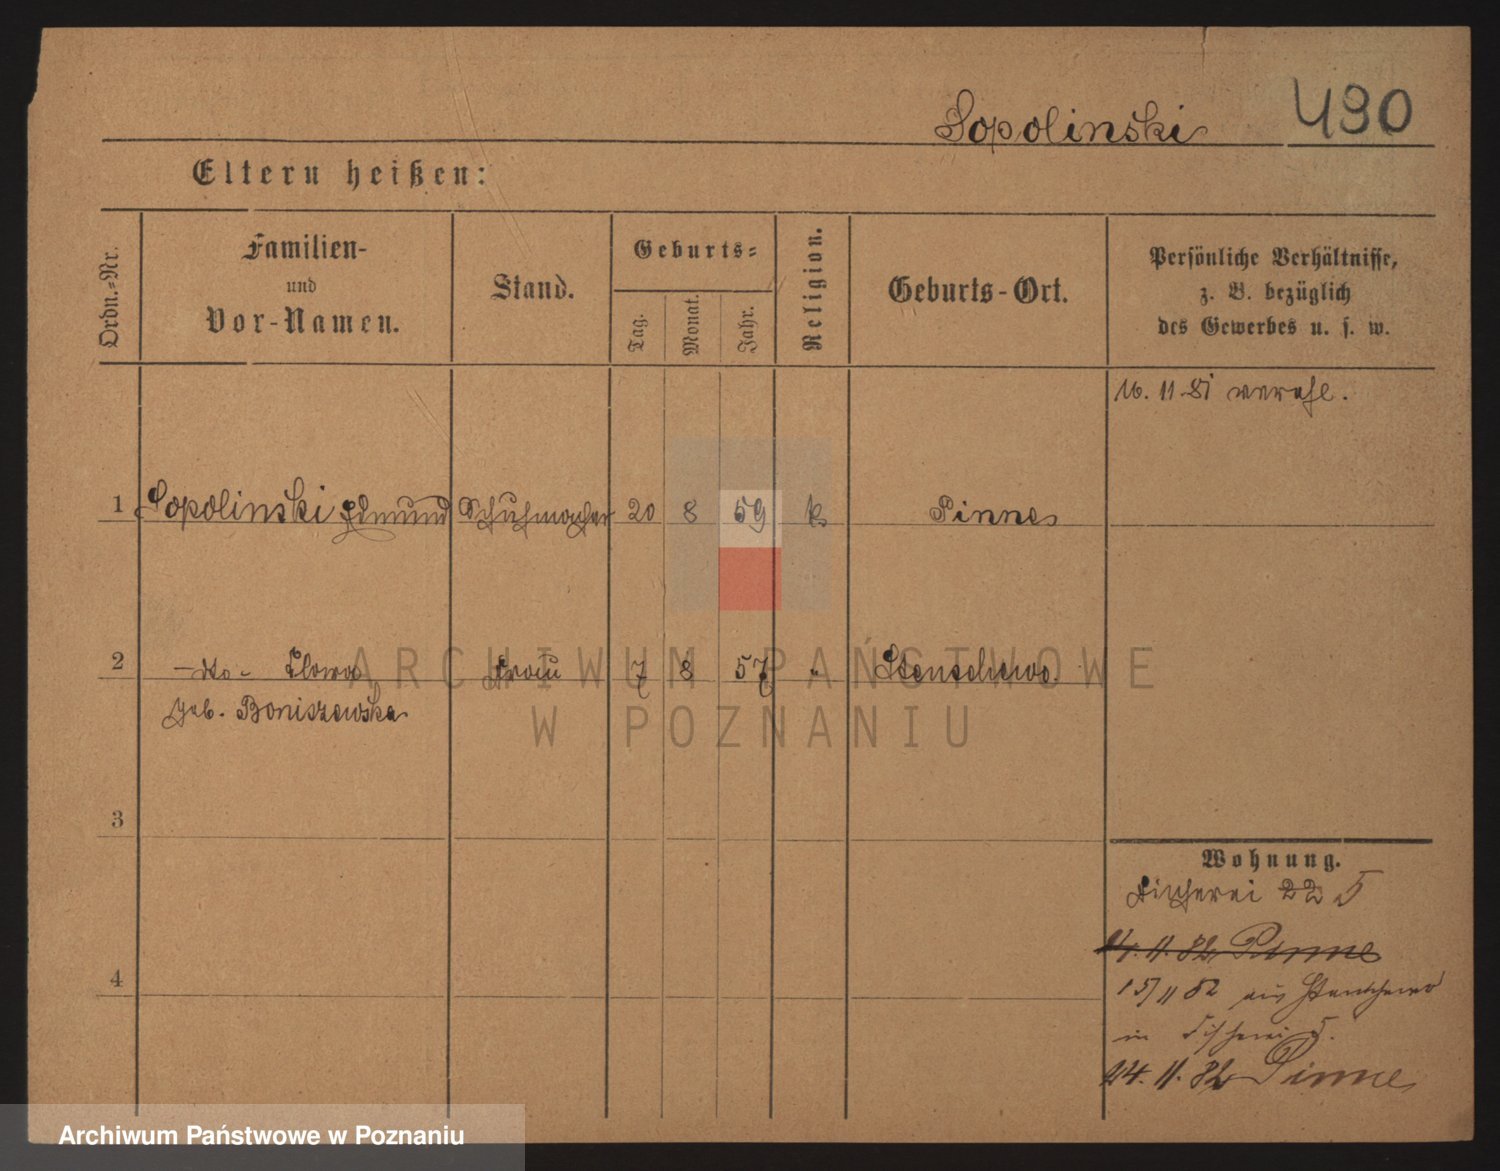 Sopolinski 490
Eltern heißen:
Ordn.-Nr.
Familien-
und
Vor-Namen.
Stand.
Geburts-
Tag.
Monat.
Jahr.
Religion.
Geburts-Ort.
Persönliche Verhältnisse,
z. B. bezüglich
des Gewerbes u. s. w.
16. 11. 81 verehl.
1 Sopolinski Edmund Schuhmacher 20 8 59 k Pinne
2 - dto - Frau 7 8 57 " Stenschewo
geb. Boniszewska
3
4
Wohnung.
Fischerei 22 5
24. 11. 82 Pinne
15/11 82 aus Stenschewo
in Fischerei 5.
24. 11. 82 Pinne
ARCHIWUM PAŃSTWOWE
W POZNANIU
Archiwum Państwowe w Poznaniu